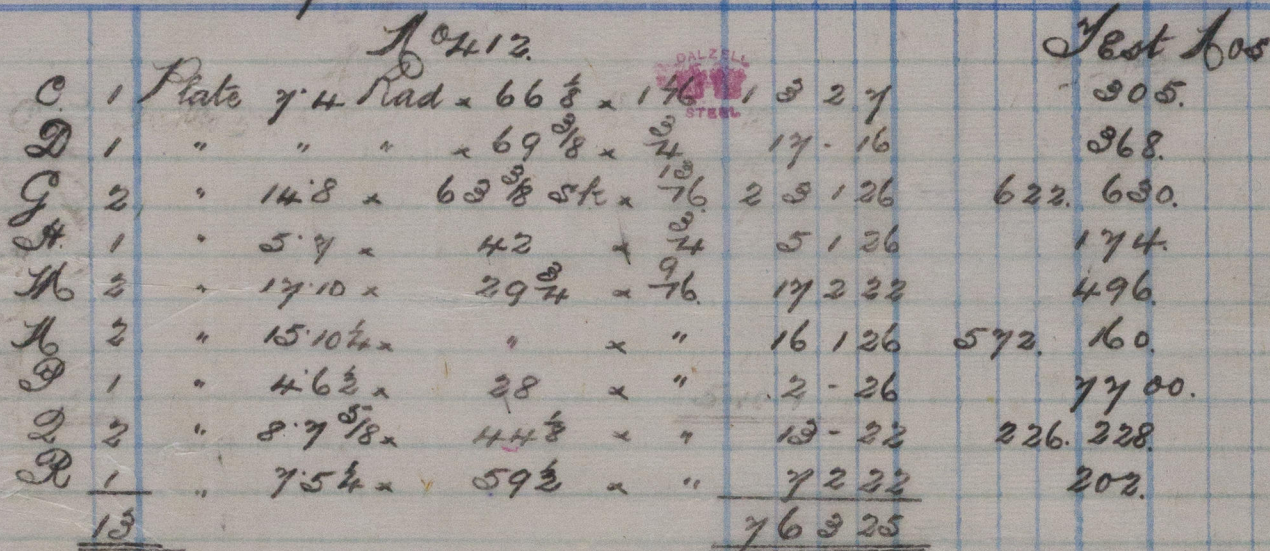 No 412. Test Nos
C. 1 Plate 7.4 Rad x 66 1/8 x 1 1/16 1 3 2 7 305.
DALZELL STEEL
D 1 " " " x 69 3/8 x 3/4 17 - 16 368.
G 2 " 14.8 x 63 3/8 Sk x 13/16 2 3 1 26 622. 630.
H. 1 " 5.7 x 42 x 3/4 5 1 26 174.
M 2 " 17.10 x 29 3/4 x 9/16 17 2 22 496.
N 2 " 15.10 1/4 x " x " 16 1 26 572. 160.
P 1 " 4.6 1/2 x 28 x " 2 - 26 7700.
Q 2 " 8.7 5/8 x 44 1/8 x " 13 - 22 226. 228.
R 1 " 7.5 1/4 x 59 1/2 x " 7 2 22 202.
13 7 6 3 25